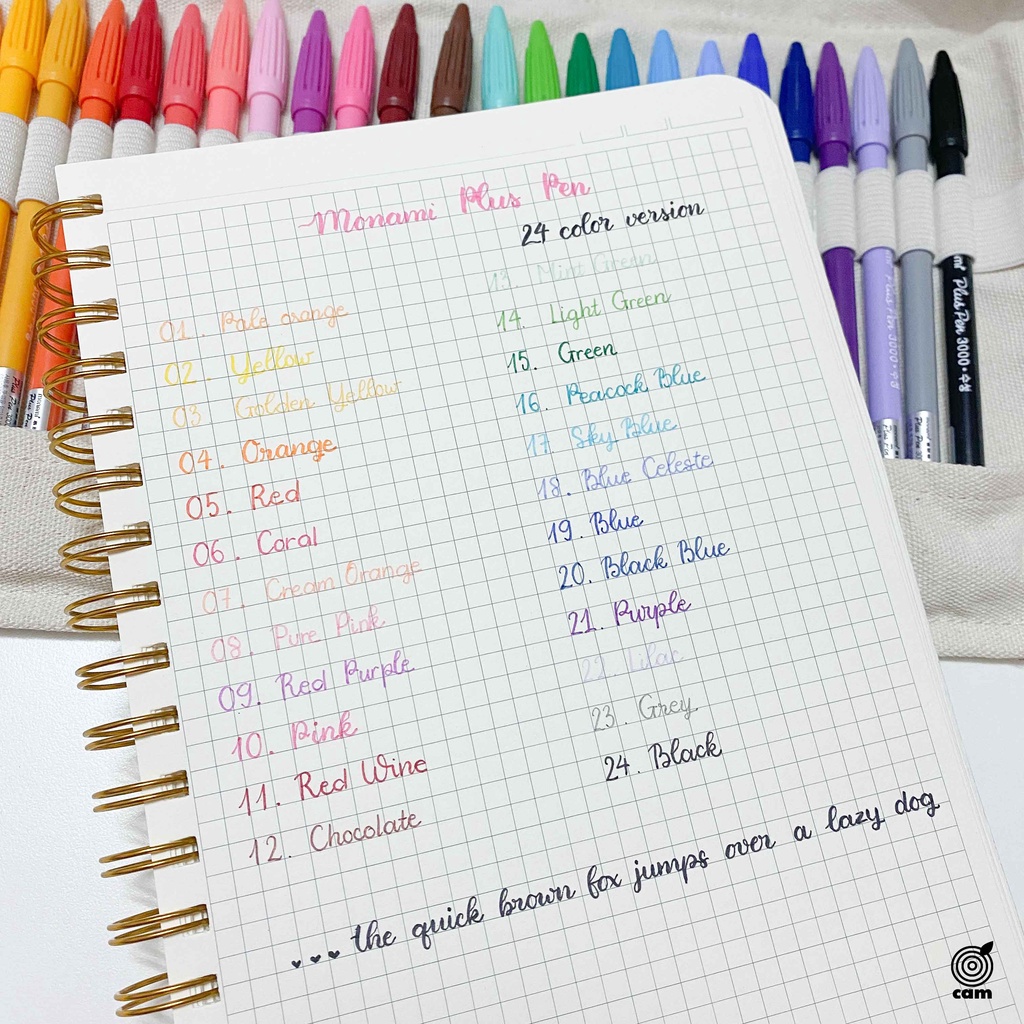 Monami Plus Pen
24 color version
01. Pale orange
02. Yellow
03. Golden Yellow
04. Orange
05. Red
06. Coral
07. Cream Orange
08. Pure Pink
09. Red Purple
10. Pink
11. Red Wine
12. Chocolate
13. Mint Green
14. Light Green
15. Green
16. Peacock Blue
17. Sky Blue
18. Blue Celeste
19. Blue
20. Black Blue
21. Purple
22. Lilac
23. Grey
24. Black
... the quick brown fox jumps over a lazy dog
Plus Pen 3000
cam